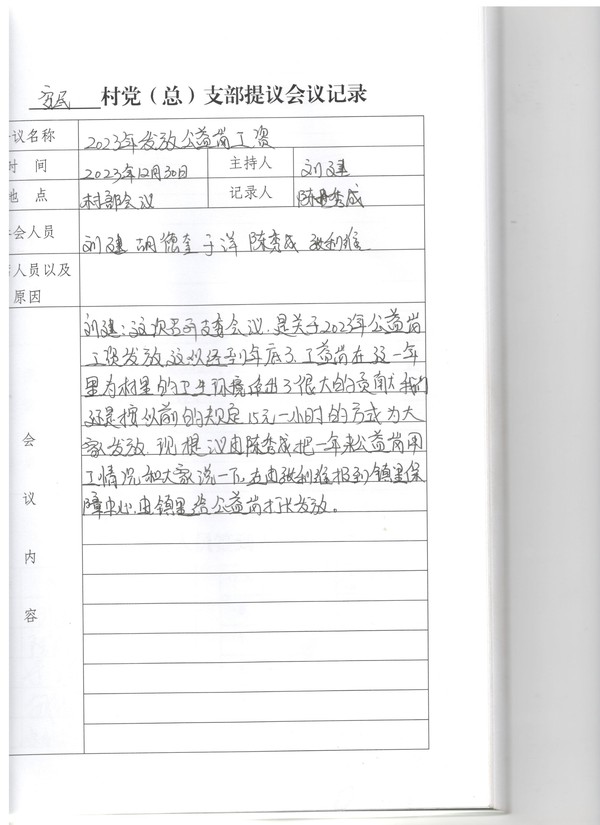 安民村党（总）支部提议会议记录
议名称 2023年发放公益岗工资
时 间 2023年12月30日 主持人 刘建
地 点 村部会议 记录人 陈秀成
会人员 刘建 胡德奎 于洋 陈秀成 张利维
人员以及
原因
会议内容
刘建：这次召开支委会议，是关于2023年公益岗
工资发放，这以经到年底了，工益岗在这一年
里为村里的卫生环境作出了很大的贡献，我们
还是按以前的规定15元一小时的方式为大
家发放，现提议由陈秀成把一年来公益岗用
工情况和大家说一下，在由张利维报到镇里保
障中心，由镇里给公益岗打卡发放。